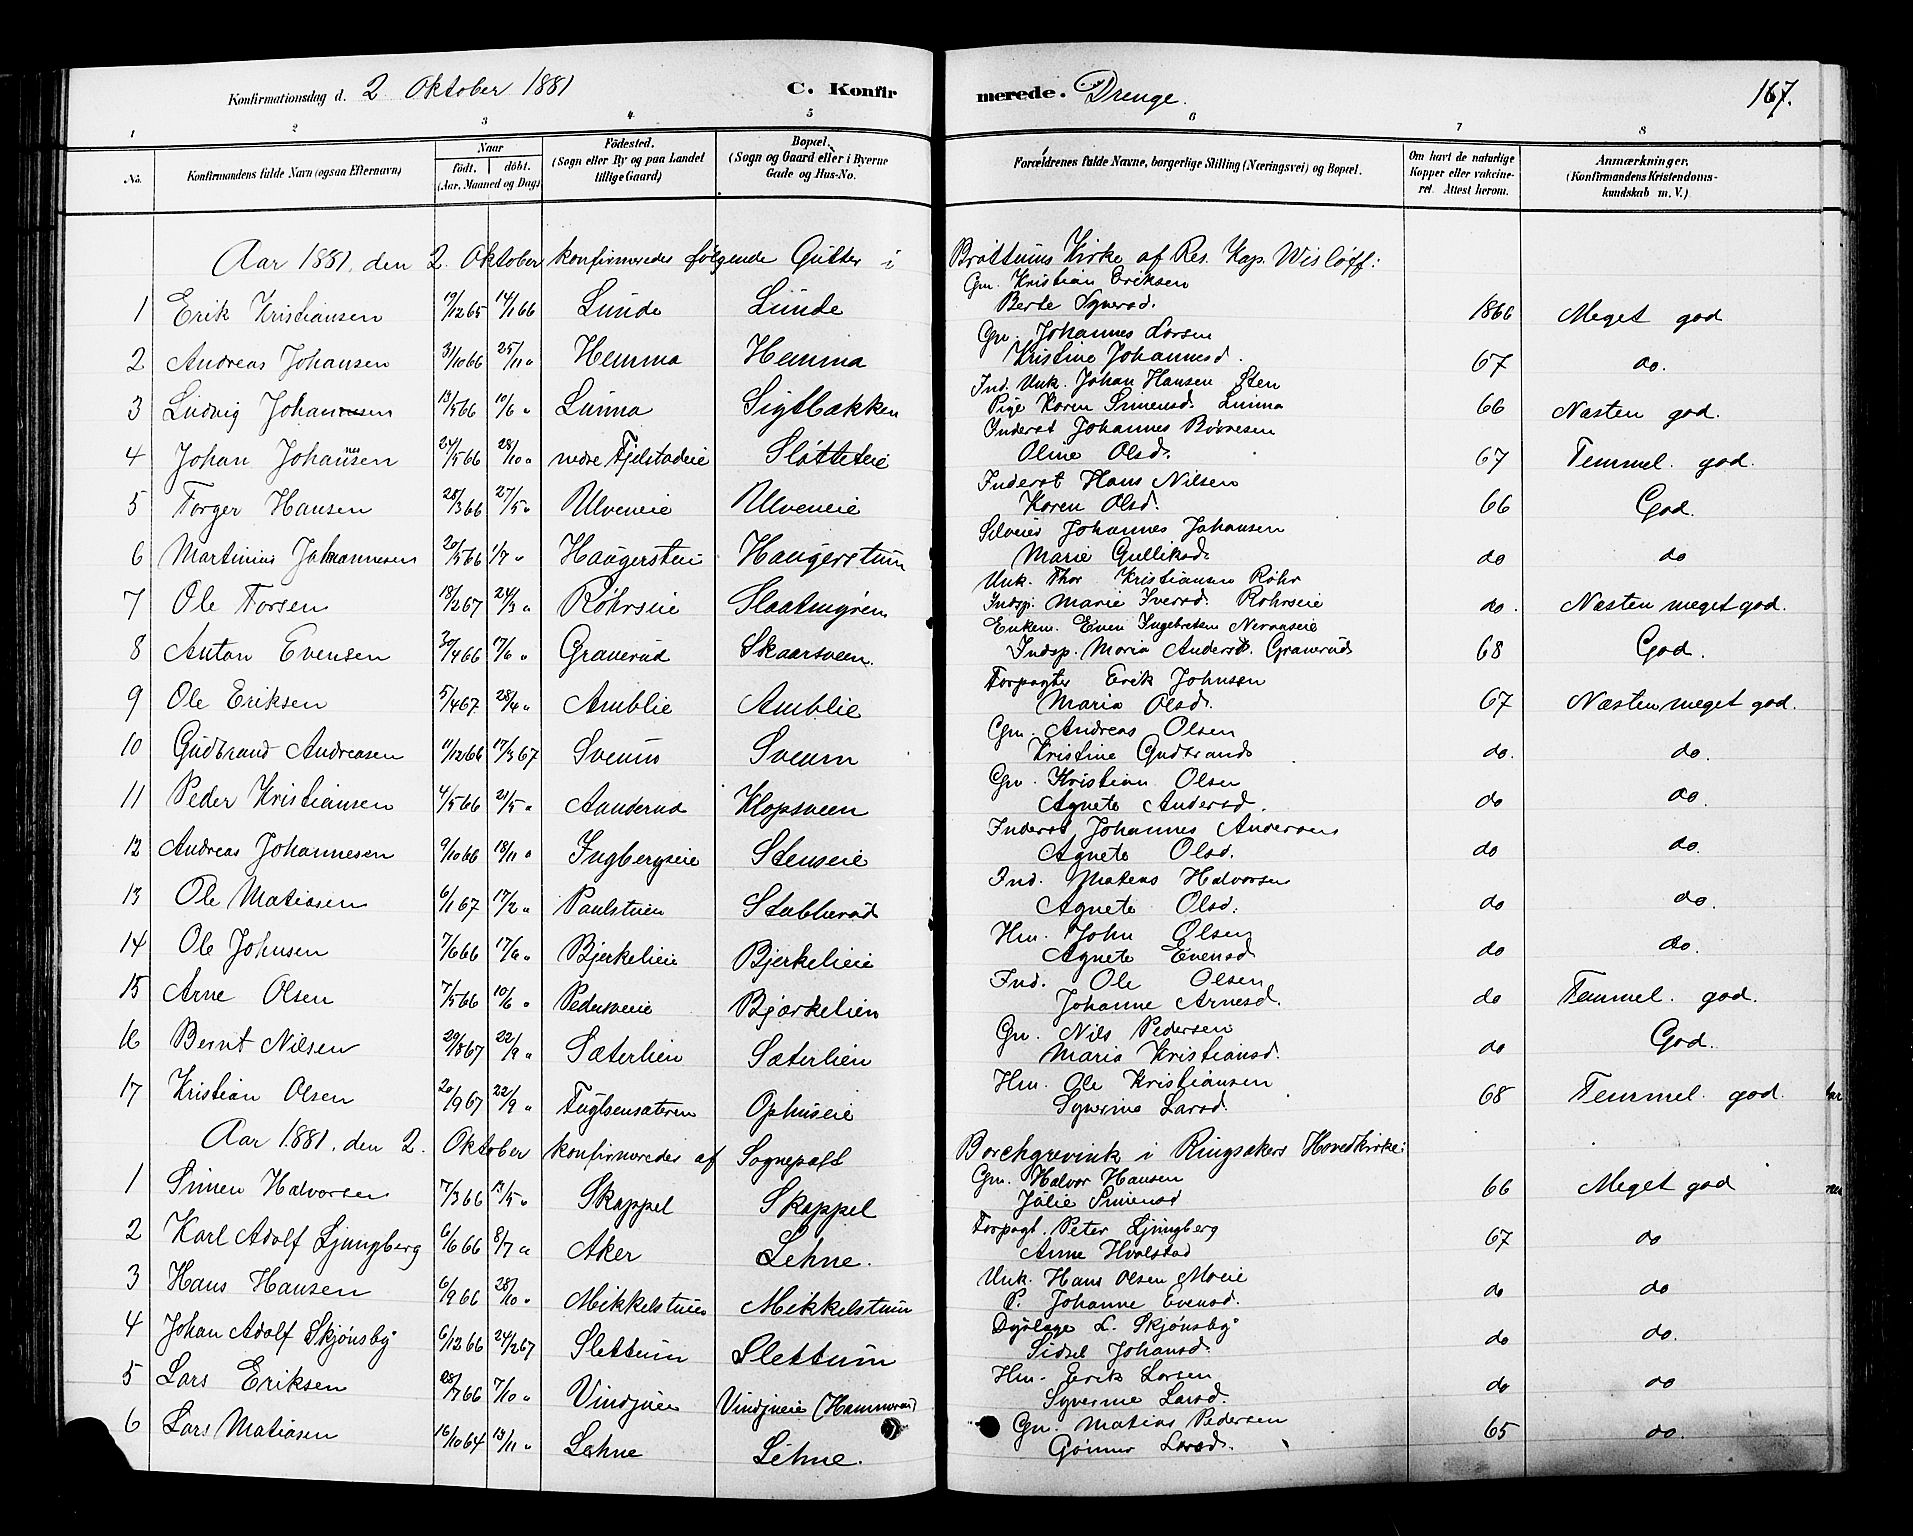 Konfirmationsdag d. 2 Oktober 1881 C. Konfirmerede. Drenge. 167.
1 2 3 4 5 6 7 8
No. Konfirmandens fulde Navn (ogsaa Efternavn) Naar födt. döbt. (Aar, Maaned og Dag) Födested. (Sogn eller By og paa Landet tillige Gaard) Bopæl. (Sogn og Gaard eller i Byerne Gade og Hus-No. Forældrenes fulde Navne, borgerlige Stilling (Næringsvei) og Bopæl. Om havt de naturlige Kopper eller vakcineret. Attest herom. Anmærkninger. (Konfirmandens Kristendomskundskab m. V.)
Aar 1881, den 2. Oktober konfirmeredes følgende Gutter i Brøttums Kirke af Res. Kap. Wisløff:
1 Erik Kristiansen 19/12 65 14/1 66 Lunde Lunde Gm. Kristian Eriksen Berte Syversd. 1866 Meget god
2 Andreas Johansen 31/10 66 25/11 " Hemma Hemma Gm. Johannes Larsen Kristine Johannesd. 67 do.
3 Ludvig Johansen 13/5 66 10/6 " Lunna Sigtbakken Ind. Unk. Johan Hansen Sten Pige Karen Simensd. Lunna 66 Næsten god.
4 Johan Johannesen 24/5 66 28/10 " nedre Fjelstadeie Slötteteie Inderst Johannes Oline Olsd. 67 Temmel. god.
5 Torger Hansen 28/3 66 27/5 " Ulveneie Ulveneie Inderst Hans Nilsen Karen Olsd. 66 God.
6 Martinus Johannesen 20/5 66 1/7 " Haugerstuen Haugerstuen Selveier Johannes Johansen Marie Gulliksd. do do
7 Ole Torsen 18/2 67 24/3 " Röhrseie Slaatmyren Unk. Thor Kristiansen Röhr Indsp. Marie Iversd. Rohrseie do. Næsten meget god.
8 Anton Evensen 30/4 66 17/6 " Graverud Skaarsveen. Enkem. Even Ingebretsen Indsp. Maria Andersd. Graverud 68 God.
9 Ole Eriksen 5/4 67 28/4 " Amblie Amblie Forpagter Erik Johnsen Maria Olsd. 67 Næsten meget god.
10 Gudbrand Andreasen 11/12 66 17/3 67 Sveum Sveum Gm. Andreas Olsen Kristine Gudbrandsd. do. do.
11 Peder Kristiansen 4/5 66 21/5 " Aanderud Klopsveen Gm. Kristian Olsen Agnete Andersd. do do.
12 Andreas Johannesen 9/10 66 18/11 " Ingbergseie Stenseie Inderst Johannes Andersen Agnete Olsd. do do.
13 Ole Matiasen 6/1 67 17/2 " Paulstuen Stabberud Ind. Matias Halvorsen Agnete Olsd. do do.
14 Ole Johnsen 7/6 66 17/6 " Bjerkelieie Bjerkelieie Hm. John Olsen Agnete Evensd do do.
15 Arne Olsen 7/5 66 10/6 " Pedersveie Bjørkelien Ind. Ole Olsen Johanne Arnesd. do Temmel. god.
16 Bernt Nilsen 29/8 67 22/9 " Sæterlien Sæterlien Gm. Nils Pedersen Maria Kristiansd. do God.
17 Kristian Olsen 20/9 67 22/9 " Fuglsensæteren Ophuseie Hm. Ole Kristiansen Syverine Larsd. 68 Temmel. god.
Aar 1881, den 2. Oktober konfirmeredes af Sognepræst Borchgrevink i Ringsakers Hovedkirke:
1 Simen Halvorsen 7/3 66 13/5 " Skappel Skappel Gm. Halvor Hansen Julie Simensd 66 Meget god
2 Karl Adolf Ljungberg 6/6 66 8/7 " Aker Lehne. Forpagt. Peter Ljungberg Anne Hvalstad 67 do
3 Hans Hansen 6/9 66 28/10 " Mikkelstuen Mikkelstuen Unk. Hans Olsen Moeie P. Johanne Evensd. do do
4 Johan Adolf Skjönsby 6/12 66 24/2 67 Slettum Slettum Dyrlæge L. Skjönsby Sidsel Johansd. do do.
5 Lars Eriksen 28/7 66 7/10 " Vindjuei Vindjueie (Hammerud) Hm. Erik Larsen Syverine Larsd. do do
6 Lars Matiasen 16/10 64 13/11 " Lehne Lehne. Gm. Matias Pedersen Gönner Larsd. 65 do.